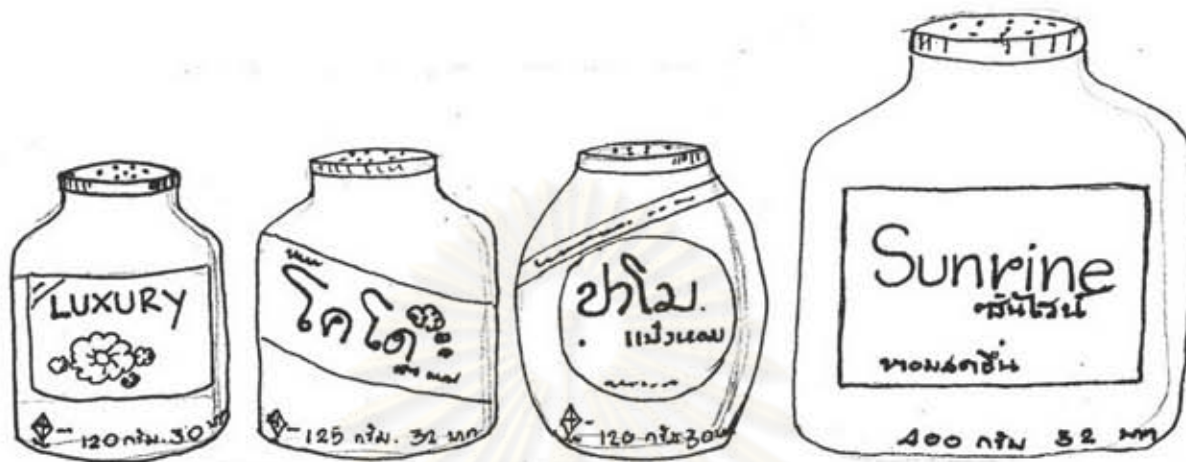 LUXURY
120 กรัม. 30
โคโด
125 กรัม. 32 บาท
ปาโม.
แป้งหอม
120 กรัม 30
Sunrine
ซันไรน์
หอมสดชื่น
400 กรัม 32 บาท